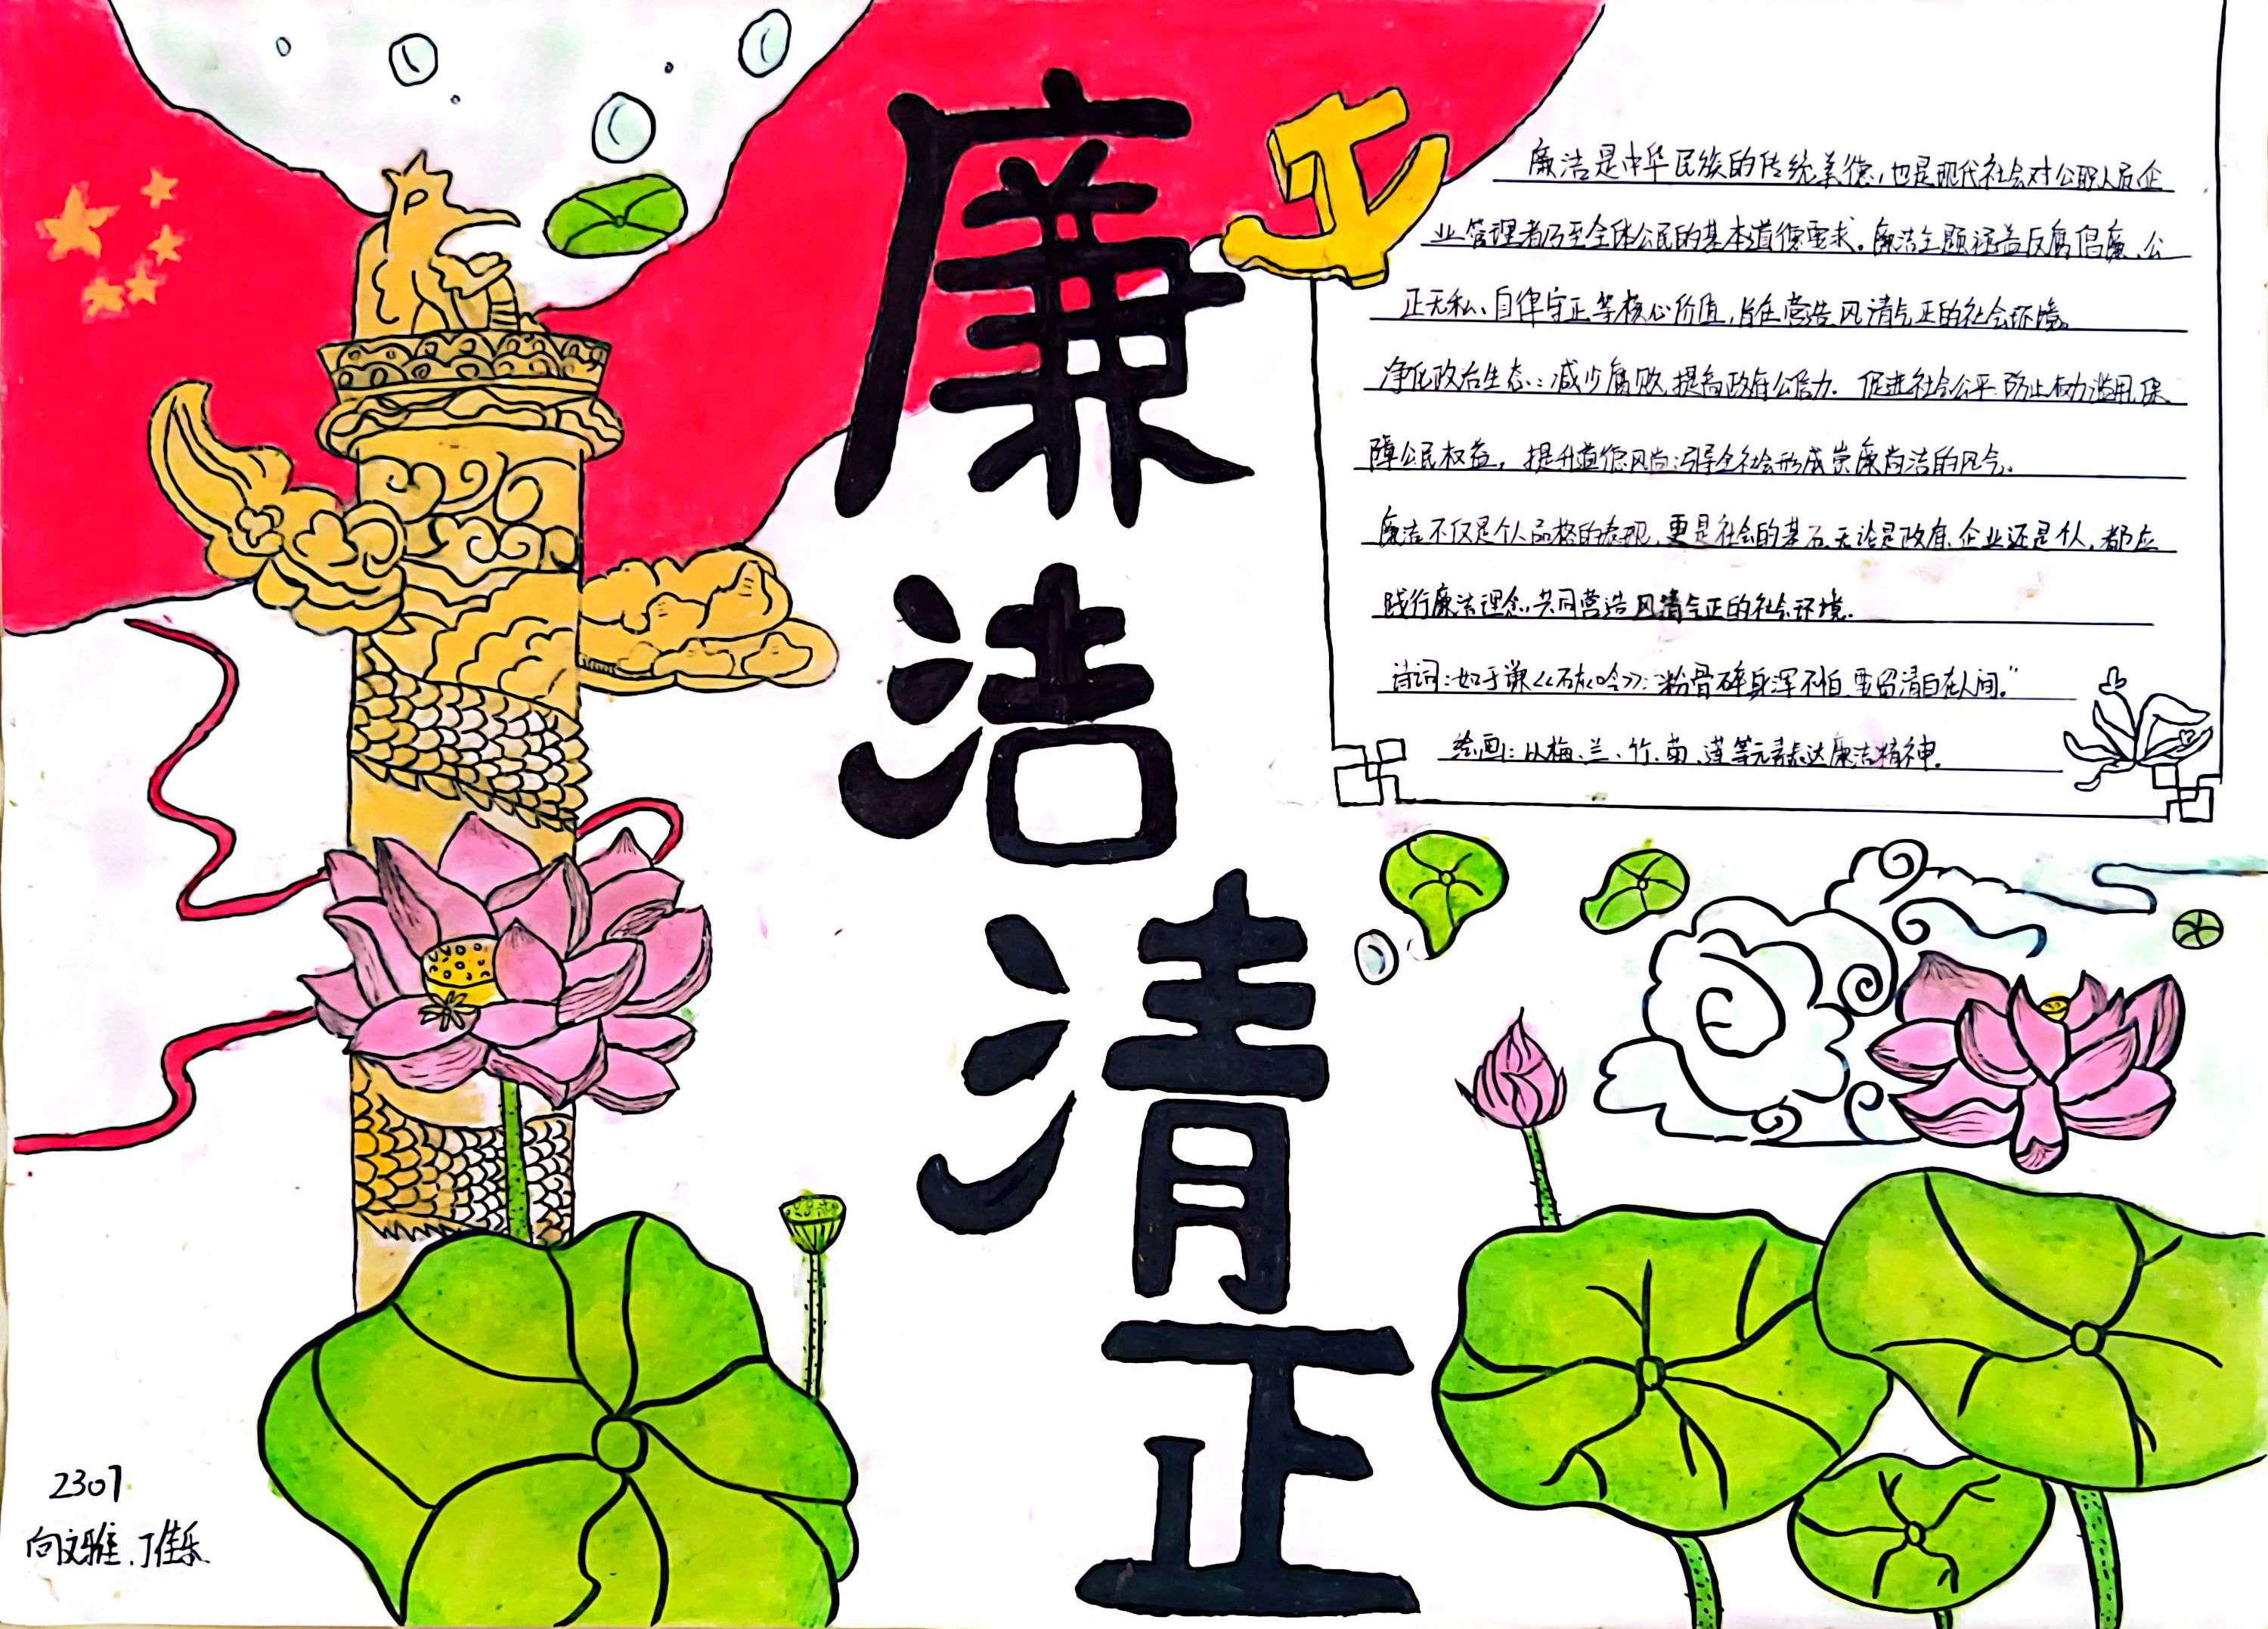 廉洁清正
廉洁是中华民族的传统美德,也是现代社会对公职人员企
业管理者乃至全体公民的基本道德要求。廉洁主题涵盖反腐倡廉、公
正无私、自律守正等核心价值,旨在营造风清气正的社会环境。
净化政治生态:减少腐败,提高政府公信力. 促进社会公平:防止权力滥用,保
障公民权益, 提升道德风尚:引导全社会形成崇廉尚洁的风气。
廉洁不仅是个人品格的表现,更是社会的基石,无论是政府、企业还是个人,都应
践行廉洁理念,共同营造风清气正的社会环境.
诗词:如于谦《石灰吟》:“粉骨碎身浑不怕,要留清白在人间。”
绘画:以梅、兰、竹、菊、莲等元素表达廉洁精神.
2307
向文雅、丁佳乐